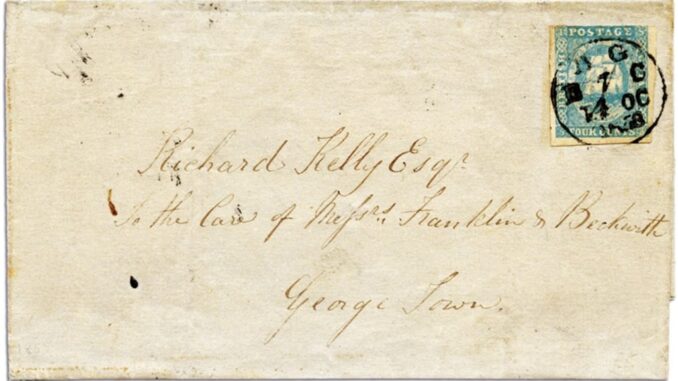 POSTAGE
FOUR CENTS
Richard Kelly Esqr.
To the Care of Messrs. Franklin & Beckwith
George Town.